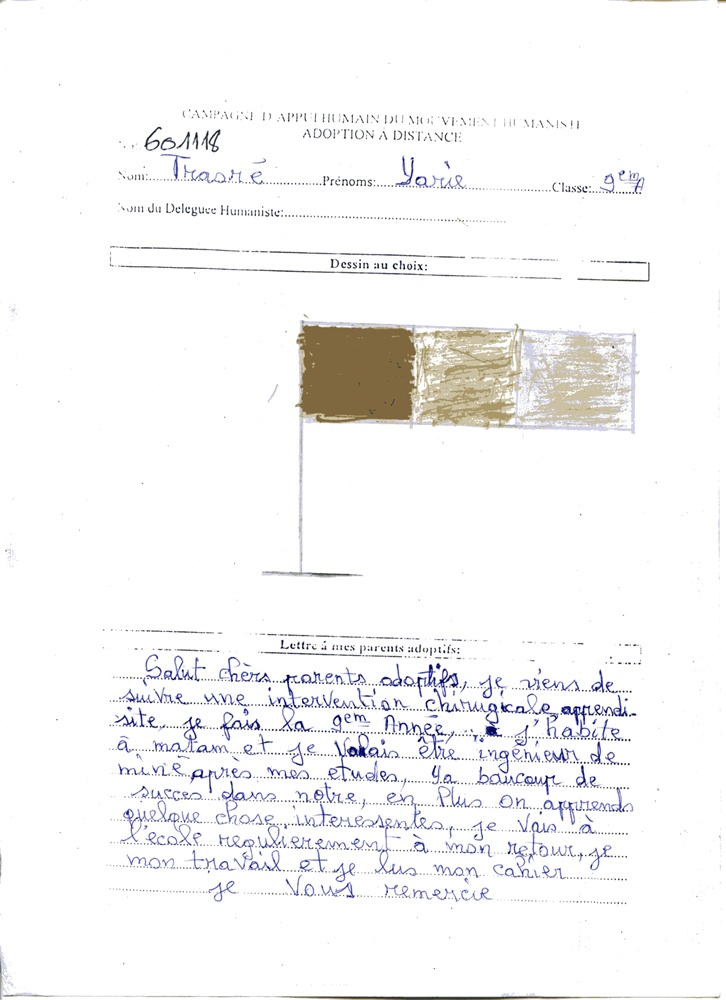 CAMPAGNE D'APPUI HUMAIN DU MOUVEMENT HUMANISTE
ADOPTION À DISTANCE
N°: 601118
Nom: Traoré Prénoms: Yarie Classe: 9em A
Nom du Deleguee Humaniste:
Dessin au choix:
Lettre à mes parents adoptifs:
Salut chèrs parents adoptifs, je viens de
suivre une intervention chirugicale apprendi-
site, je fais la 9em Année, j'habite
à matam et je Valais être ingénieur de
mine après mes etudes, Ya baucoup de
succes dans notre, en Plus on apprends
quelque chose interessentes, je Vais à
l'école regulierement à mon retour, je
mon travail et je lus mon cahier
je Vous remercie